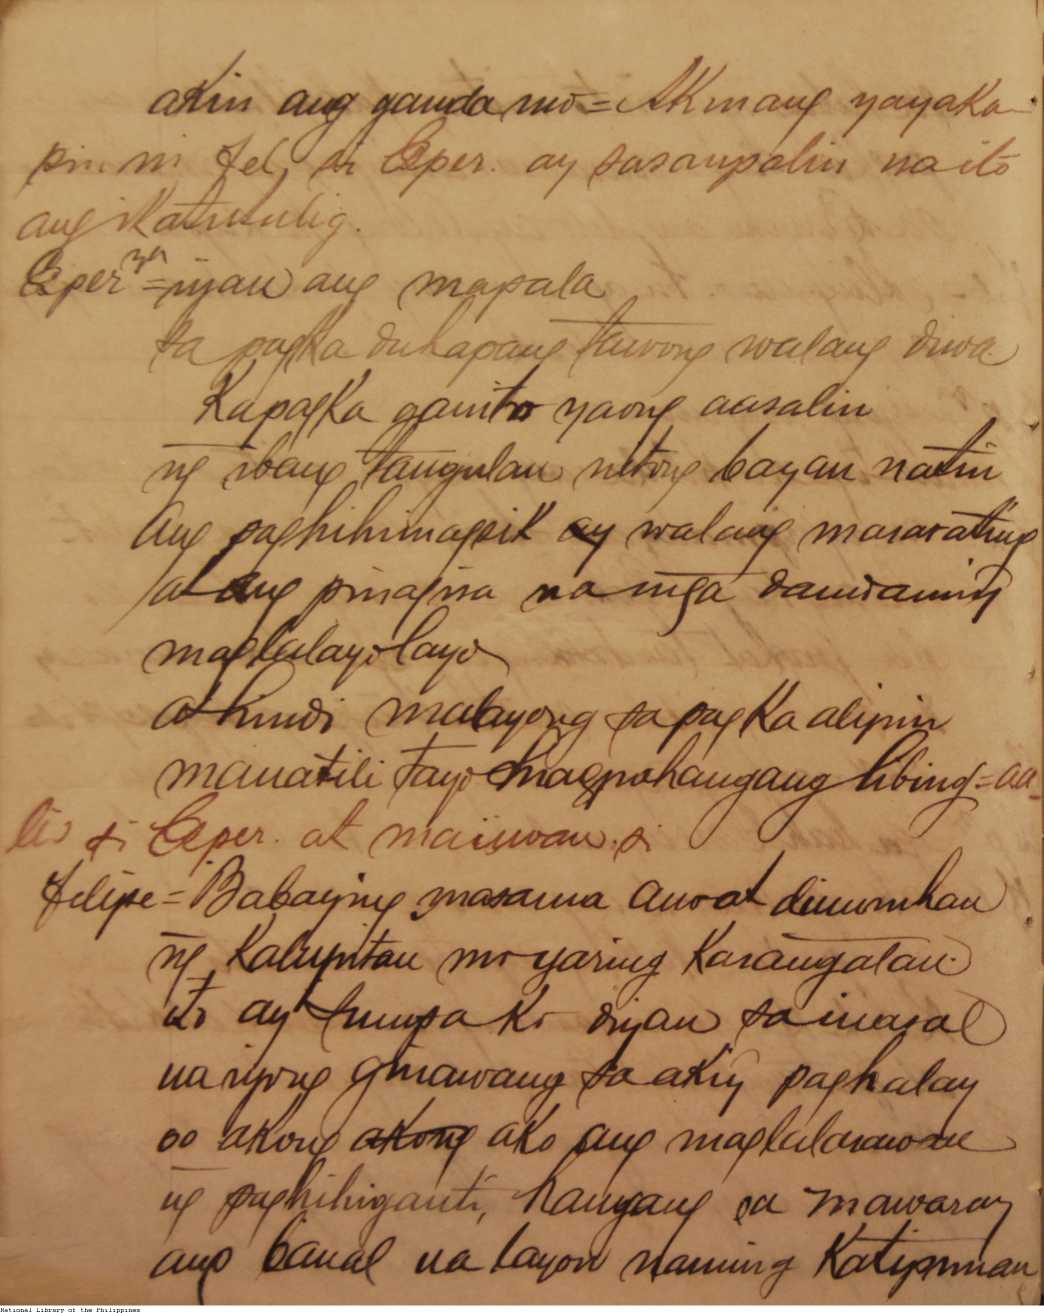 akin ang ganda mo = Akmang yayaka-
pin ni Fel, si Esper. ay sasampalin na ito
ang ikatutulig.
Esperza = iyan ang mapala
sa pagka duhapang tawong walang diwa
Kapagka ganito yaong aasalin
ng ibang tangulan nitong bayan natin
Ang paghihimagsik ay walang mararating
at ang pinagisa na mga damdaming
maglalayolayo
at hindi malayong sa pagka alipin
manatili tayo hangang libing = aa-
lis si Esper. at maiiwan si
Felipe = Babaying masama
ng Kalupitan mo yaring Karangalan
ito ay isumpa ko diyan sa inasal
na iyong ginawang sa aking paghalay
oo akong akong ako ang
ng paghihiganti, hangang sa mawaray
ang banal na layon naming Katipunan
National Library of the Philippines